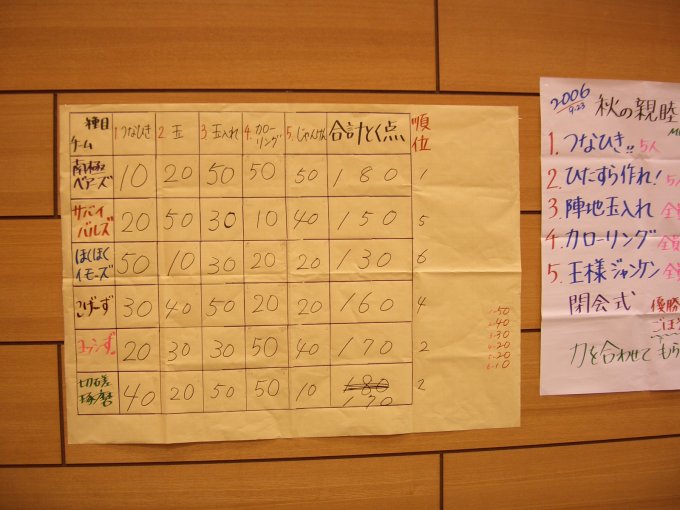 種目
ゲーム
1 つなひき 2 玉 3 玉入れ 4 カローリング 5 じゃんけん 合計とく点 順位
南極ベアーズ 10 20 50 50 50 180 1
サバイバルズ 20 50 30 10 40 150 5
ほくほくイモーズ 50 10 30 20 20 130 6
こげーず 30 40 50 20 20 160 4
20 30 30 50 40 170 2
切磋琢磨 40 20 50 50 10 180 170 2
1-50
2-40
3-30
4-20
5-20
6-10
2006
9.23
秋の親睦
1. つなひき!! 5人
2. ひたすら作れ! 5人
3. 陣地玉入れ 全
4. カローリング 全
5. 王様ジャンケン 全
閉会式 優勝
ごほう
力を合わせて もら